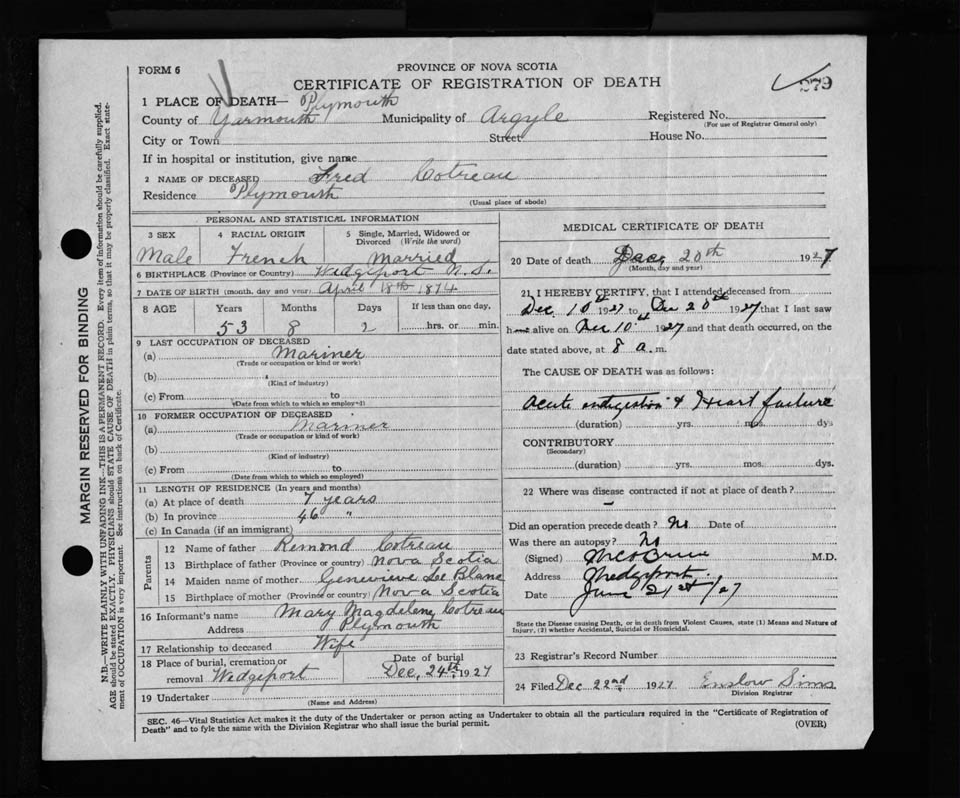 FORM 6
PROVINCE OF NOVA SCOTIA
279
CERTIFICATE OF REGISTRATION OF DEATH
1 PLACE OF DEATH— Plymouth
County of Yarmouth Municipality of Argyle Registered No.
(For use of Registrar General only)
City or Town Street House No.
If in hospital or institution, give name
2 NAME OF DECEASED Fred Cotreau
Residence Plymouth
(Usual place of abode)
PERSONAL AND STATISTICAL INFORMATION
3 SEX 4 RACIAL ORIGIN 5 Single, Married, Widowed or Divorced (Write the word)
Male French Married
6 BIRTHPLACE (Province or Country) Wedgeport N.S.
7 DATE OF BIRTH (month, day and year) April 18th 1874
8 AGE Years Months Days If less than one day,
53 8 2 hrs. or min.
9 LAST OCCUPATION OF DECEASED
(a) Mariner
(Trade or occupation or kind or work)
(b)
(Kind of industry)
(c) From to
(Date from which to which so employed)
10 FORMER OCCUPATION OF DECEASED
(a) Mariner
(Trade or occupation or kind of work)
(b)
(Kind of industry)
(c) From to
(Date from which to which so employed)
11 LENGTH OF RESIDENCE (In years and months)
(a) At place of death 7 years
(b) In province 46 "
(c) In Canada (if an immigrant)
Parents
12 Name of father Remond Cotreau
13 Birthplace of father (Province or country) Nova Scotia
14 Maiden name of mother Genevieve Le Blanc
15 Birthplace of mother (Province or country) Nova Scotia
16 Informant's name Mary Magdelene Cotreau
Address Plymouth
17 Relationship to deceased Wife
18 Place of burial, cremation or removal Wedgeport Date of burial Dec, 24th, 1927
19 Undertaker
(Name and Address)
MEDICAL CERTIFICATE OF DEATH
20 Date of death Dec, 20th 1927
(Month, day and year)
21 I HEREBY CERTIFY, that I attended deceased from
Dec 10th 1927 to Dec 20th 1927 that I last saw
h alive on Dec 10th 1927 and that death occurred, on the
date stated above, at 8 a.m.
The CAUSE OF DEATH was as follows:
Acute indigestion & Heart failure
(duration) yrs. mos. dys
CONTRIBUTORY
(Secondary)
(duration) yrs. mos. dys.
22 Where was disease contracted if not at place of death?
Did an operation precede death? No Date of
Was there an autopsy? No
(Signed) M.D.
Address Wedgeport
Date June 21st /27
State the Disease causing Death, or in death from Violent Causes, state (1) Means and Nature of
Injury, (2) whether Accidental, Suicidal or Homicidal.
23 Registrar's Record Number
24 Filed Dec 22nd 1927 Enslow Sims
Division Registrar
SEC. 46—Vital Statistics Act makes it the duty of the Undertaker or person acting as Undertaker to obtain all the particulars required in the "Certificate of Registration of
Death" and to fyle the same with the Division Registrar who shall issue the burial permit. (OVER)
MARGIN RESERVED FOR BINDING
N.B.—WRITE PLAINLY WITH UNFADING INK—THIS IS A PERMANENT RECORD. Every item of information should be carefully supplied.
AGE should be stated EXACTLY. PHYSICIANS should STATE CAUSE OF DEATH in plain terms, so that it may be properly classified. Exact state-
ment of OCCUPATION is very important. See instructions on back of Certificate.